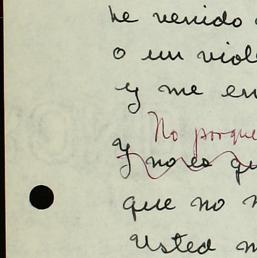 he venido
o un viol
y me en
No porque
y no es qu
que no n
Usted m